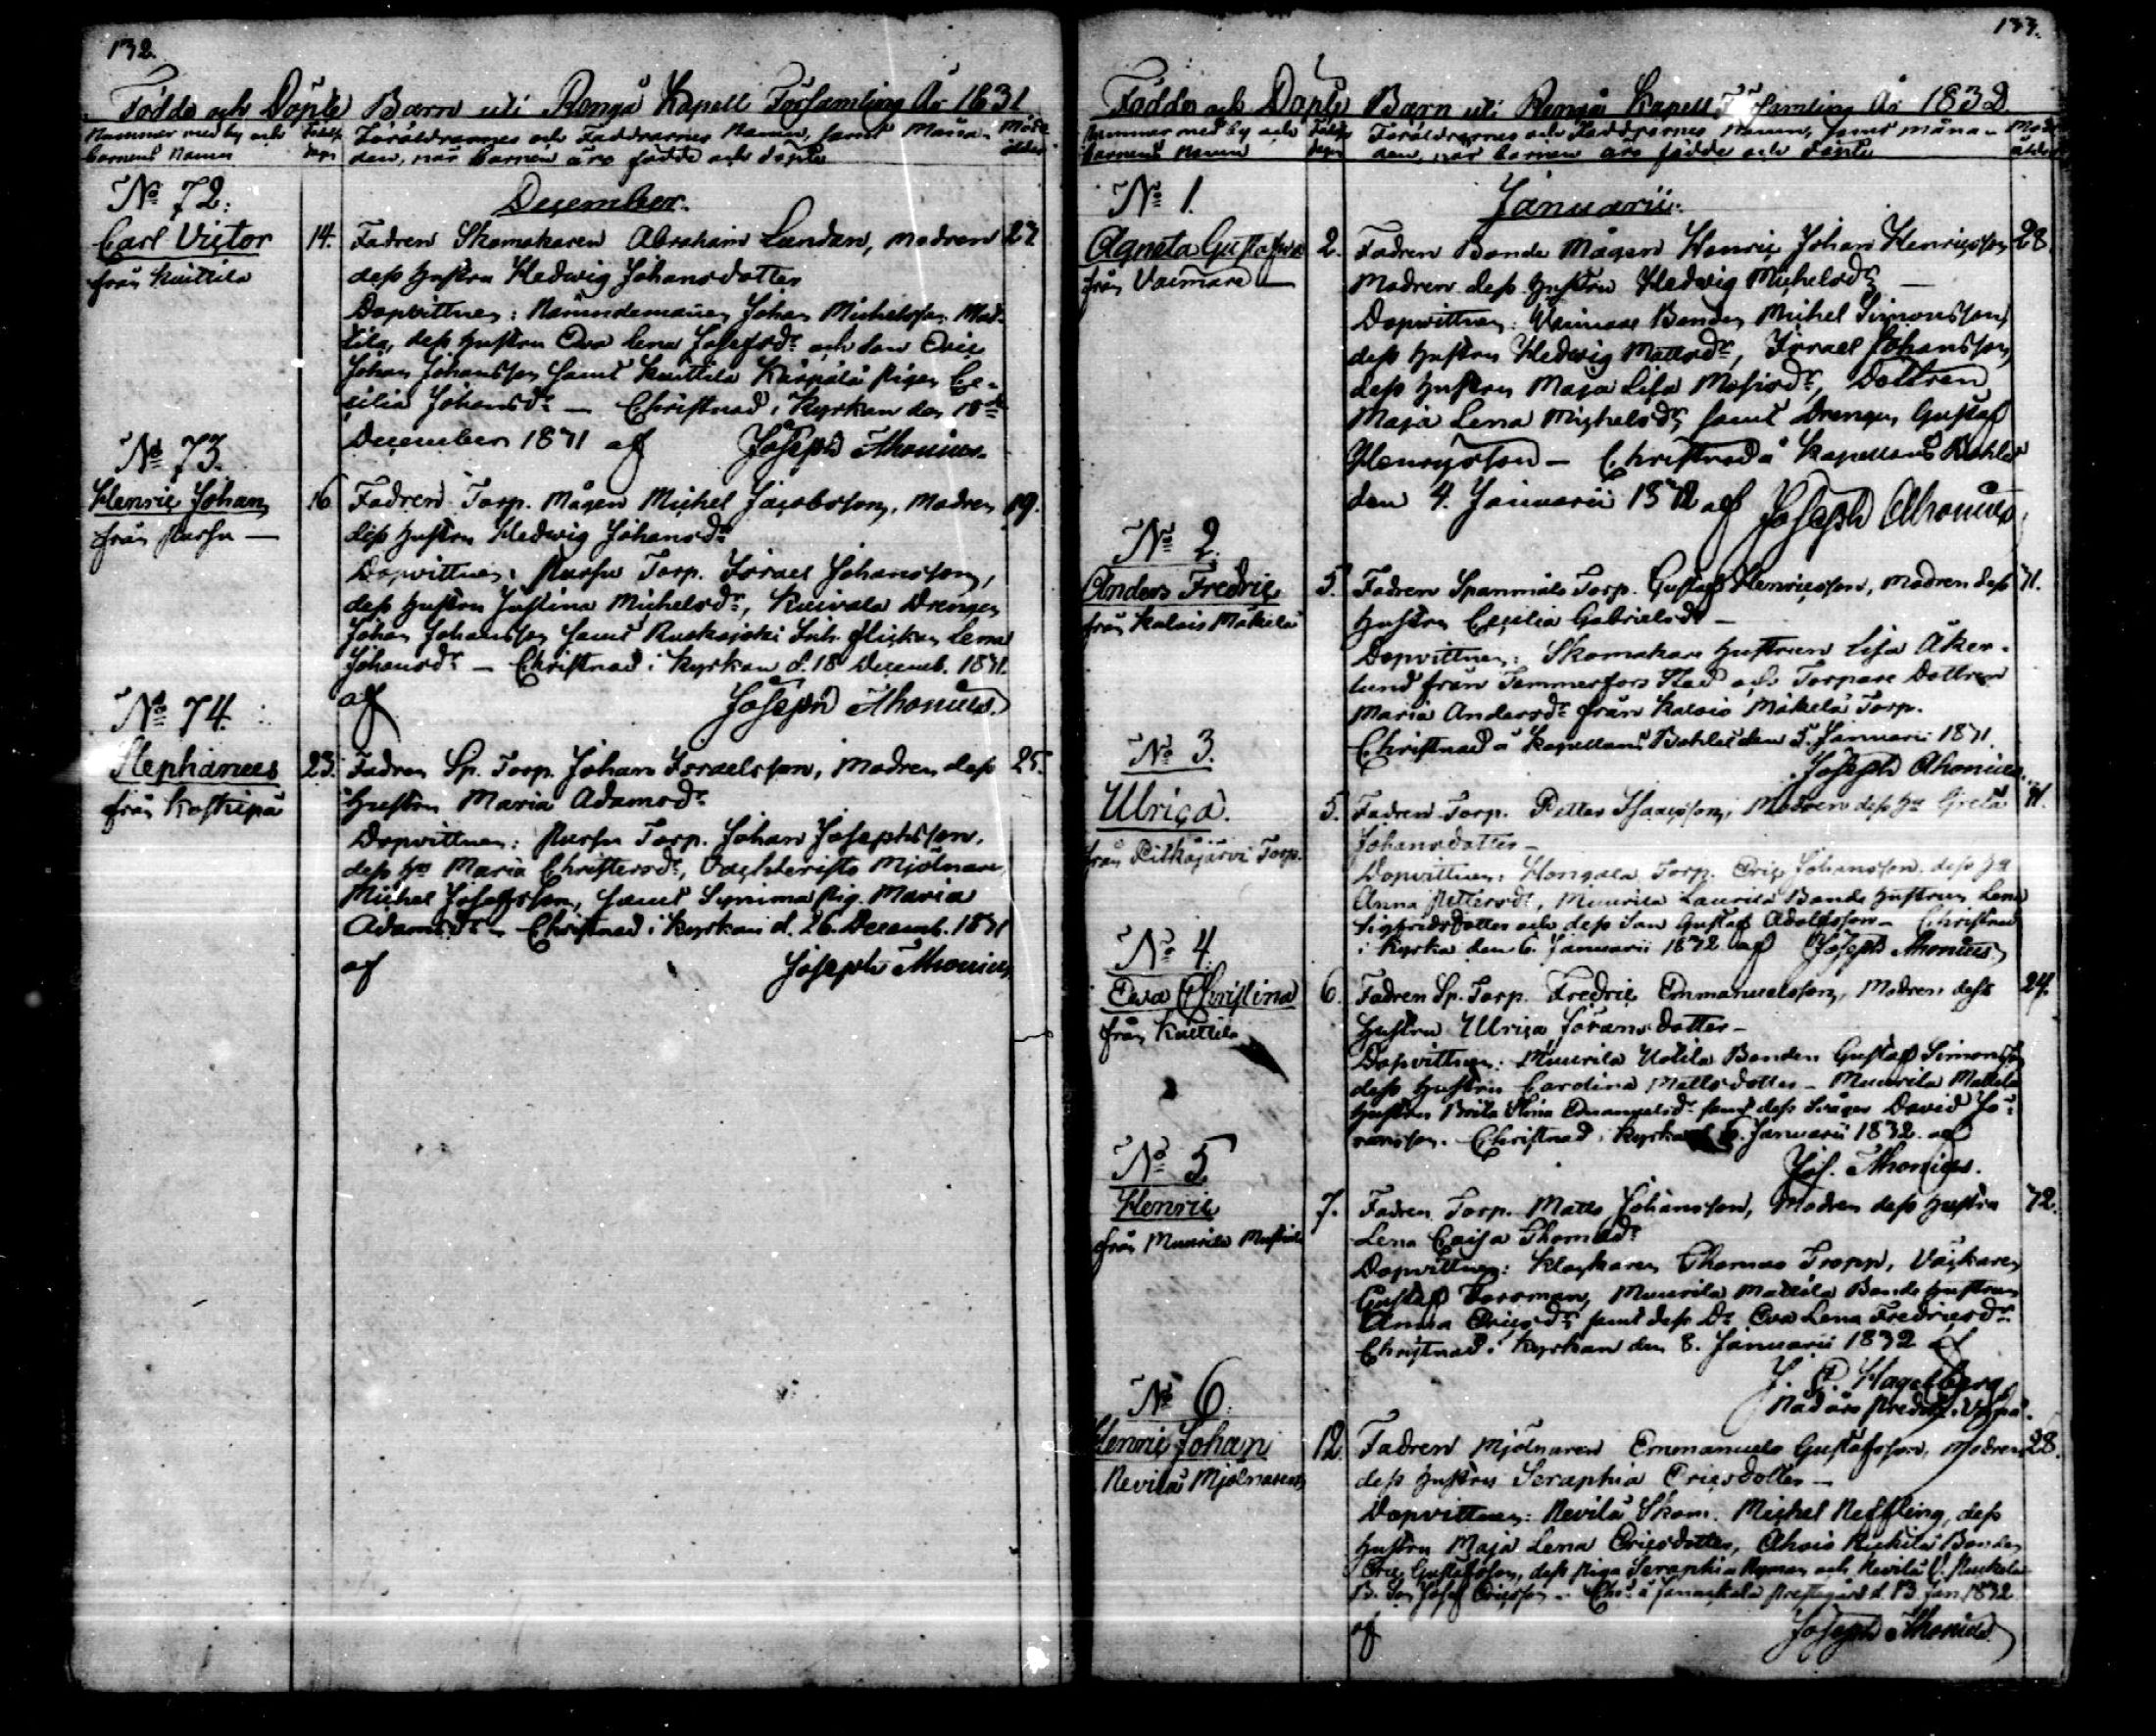 132.
Födde och Döpte Barn uti Rengå Kapell Församling År 1831
Nummer med by och barnens Namn
Födelse dagen
Föräldrarnes och Faddrarnes Namn, samt Måna-
den, när barnen äro födde och döpte
Moder ålder
December.
No 72.
Carl Victor
från Kuittila
14. Fadren Skomakaren Abraham Lundan, modren 27
dess hustru Hedwig Johansdotter
Dopvittnen: Nämndemannen Johan Michelsson Mat-
tila, dess hustru Eva Lena Josefsdr och son Eric
Johan Johansson samt Kuittila Kärpälä Pigan Ce-
cilia Johansdr — Christnad i Kyrkan den 18de
December 1831 af Joseph Ahonius.
No 73.
Henric Johan
från Pursu —
16 Fadren Torp. Mågen Michel Jacobsson, Modren 19.
dess hustru Hedwig Johansdr
Dopvittnen: Pursu Torp. Israel Johansson,
dess hustru Justina Michelsdr, Kuivala Drengen
Johan Johansson samt Ruskajoki Inh. flickan Lena
Johansdr — Christnad i Kyrkan d. 18 Decemb. 1831.
af Joseph Ahonius.
No 74.
Stephanus
från Koskipä
23. Fadren Sp. Torp. Johan Israelsson, Modren dess 25.
hustru Maria Adamsdr
Dopvittnen: Pursu Torp. Johan Josephsson,
dess hu Maria Christersdr, Mjölnare
Michel Josefsson, samt Pig. Maria
Adamsdr — Christnad i Kyrkan d. 26. Decemb. 1831
af Joseph Ahonius
133.
Födde och Döpte Barn uti Rengå Kapell Församling År 1832
Nummer med by och Barnens Namn
Födelse dagen
Föräldrarnes och Faddrarnes Namn, samt måna-
den, när barnen äro födde och döpte
Moder ålder
Januarii.
No 1.
Agneta Gustafva
från Vaimare —
2. Fadren Bonde Mågen Henric Johan Henricsson 28
Modren dess hustru Hedwig Michelsdr —
Dopvittnen: Bonden Michel Simonsson
dess hustru Hedwig Mattsdr, Israel Johansson
dess hustru Maja Lisa Dottren
Maja Lena Michelsdr samt Drengen Gustaf
Henricsson — Christnad å Kapellans Bohlet
den 4. Januarii 1832 af Joseph Ahonius
No 2.
Anders Fredric
från Kalois Mäkelä
5. Fadren Spanmåls Torp. Gustaf Henricsson, Modren dess 31.
hustru Cecilia Gabrielsdr —
Dopvittnen: Skomakare hustrun Lisa Åker-
lund från Tammerfors Stad och Torpare Dottren
Maria Andersdr från Kalois Mäkelä Torp.
Christnad å Kapellans Bohlet den 5. Januarii 1831.
Joseph Ahonius.
No 3.
Ulrica.
från Pitkäjärvi Torp.
5. Fadren Torp. Petter Isaacsson, Modren dess hu Greta 31.
Johansdotter —
Dopvittnen: Torp. Eric Johansson, dess hu
Anna Pettersdr, Muurila Laurila Bonde hustrun Lena
Sigfridsdotter och dess Son Gustaf Adolfsson — Christnad
i Kyrka den 6. Januarii 1832 af Joseph Ahonius
No 4.
Eva Christina
från Kuittila
6. Fadren Sp. Torp. Fredric Emmanuelsson, Modren dess 24.
hustru Ulrica Göransdotter —
Dopvittnen: Muurila Uotila Bonden Gustaf Simonsson
dess hustru Carolina Mattsdotter — Muurila Mattila
hustrun Brita Stina Emanuelsdr samt dess Svåger David Gö-
ransson. Christnad i Kyrkan d. 6. Januarii 1832. af
Jos. Ahonius.
No 5
Henric
från Muurila
7. Fadren Torp. Matts Johansson, Modren dess hustru 32.
Lena Caisa Thomasdr
Dopvittnen: Klockaren Thomas Tropp, Väfkaren
Gustaf Forsman, Muurila Mattila Bonde hustrun
Anna Ericsdr samt dess Dr Eva Lena Fredricsdr
Christnad i Kyrkan den 8. Januarii 1832 af
J. E. Hagelberg
Nådårs Predik. i
No 6.
Henric Johan
Nevilä Mjölnaren
12. Fadren Mjölnaren Emmanuels Gustafsson, Modren 28.
dess hustru Seraphia Ericsdotter —
Dopvittnen: Nevilä Skom. Michel Neffling, dess
hustru Maja Lena Ericsdotter, Ahois Bonden
Eric Gustafsson, dess Piga Seraphia Nyman och Nevilä
B. Son Josef Ericsson — Chr. å Janackala Prestgård d. 13 Jan. 1832
af Joseph Ahonius